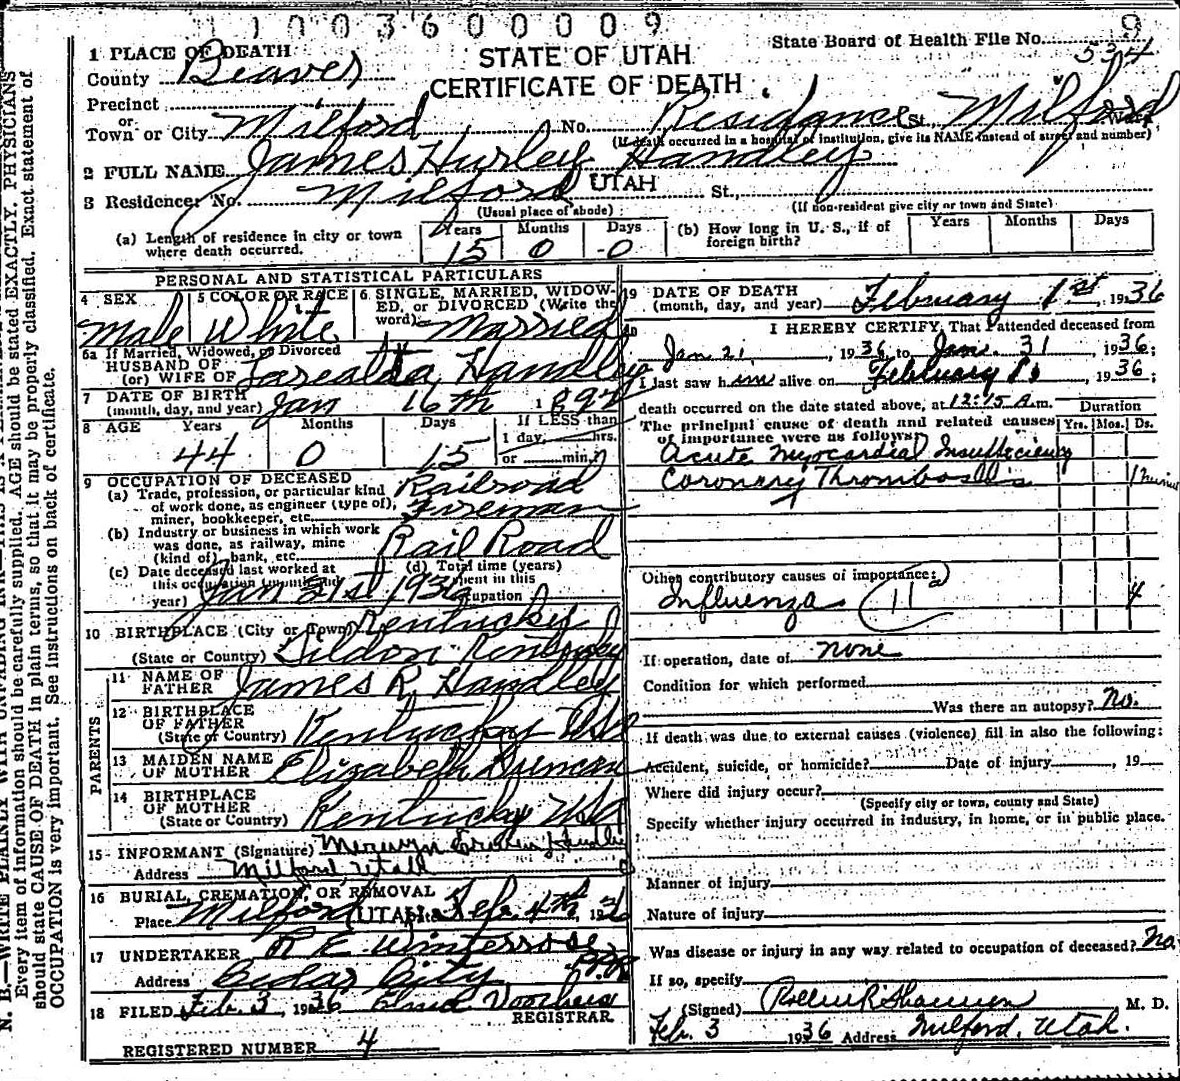 11003600009 9
1 PLACE OF DEATH
STATE OF UTAH
State Board of Health File No. 534
County Beaver
CERTIFICATE OF DEATH
Precinct
or
Town or City Milford No. Residence St. Milford Ward
(If death occurred in a hospital or institution, give its NAME instead of street and number)
2 FULL NAME James Hurley Handley
3 Residence: No. Milford UTAH St.,
(Usual place of abode) (If non-resident give city or town and State)
(a) Length of residence in city or town where death occurred. Years 15 Months 0 Days 0
(b) How long in U. S., if of foreign birth? Years Months Days
PERSONAL AND STATISTICAL PARTICULARS
4 SEX Male
5 COLOR OR RACE White
6 SINGLE, MARRIED, WIDOWED, OR DIVORCED (Write the word) Married
6a If Married, Widowed, or Divorced
HUSBAND OF
(or) WIFE OF Handley
7 DATE OF BIRTH
(month, day, and year) Jan 16th 1892
8 AGE Years 44 Months 0 Days 15 If LESS than 1 day, hrs. or min.?
9 OCCUPATION OF DECEASED
(a) Trade, profession, or particular kind of work done, as engineer (type of), miner, bookkeeper, etc. Railroad Fireman
(b) Industry or business in which work was done, as railway, mine (kind of), bank, etc. Rail Road
(c) Date deceased last worked at this occupation (month and year) Jan 21st 1936
(d) Total time (years) spent in this occupation
10 BIRTHPLACE (City or Town) Kentucky
(State or Country) Kentucky
PARENTS
11 NAME OF FATHER James R Handley
12 BIRTHPLACE OF FATHER
(State or Country) Kentucky Usa
13 MAIDEN NAME OF MOTHER Elizabeth Duncan
14 BIRTHPLACE OF MOTHER
(State or Country) Kentucky Usa
15 INFORMANT (Signature) Handley
Address Milford, Utah
16 BURIAL, CREMATION, OR REMOVAL
Place Milford UTAH Date Feb. 4th, 1936
17 UNDERTAKER R E Winterrose
Address Cedar City
18 FILED Feb. 3, 1936 Voorhees
REGISTRAR
REGISTERED NUMBER 4
19 DATE OF DEATH
(month, day, and year) February 1st, 1936
20 I HEREBY CERTIFY, That I attended deceased from
Jan 21, 1936, to Jan. 31 1936;
I last saw him alive on February 1, 1936;
death occurred on the date stated above, at 12:15 A.m.
The principal cause of death and related causes of importance were as follows: Duration Yrs. Mos. Ds.
Acute Myocardial Insufficiency
Coronary Thrombosis 1
Other contributory causes of importance:
Influenza 11a 4
If operation, date of none
Condition for which performed
Was there an autopsy? No.
If death was due to external causes (violence) fill in also the following:
Accident, suicide, or homicide? Date of injury , 19
Where did injury occur?
(Specify city or town, county and State)
Specify whether injury occurred in industry, in home, or in public place.
Manner of injury
Nature of injury
Was disease or injury in any way related to occupation of deceased? No
If so, specify
(Signed) M. D.
Feb. 3 1936 Address Milford, Utah.
N. B.—WRITE PLAINLY WITH UNFADING INK—THIS IS A
Every item of information should be carefully supplied. AGE should be stated EXACTLY. PHYSICIANS
should state CAUSE OF DEATH in plain terms, so that it may be properly classified. Exact statement of
OCCUPATION is very important. See instructions on back of certificate.